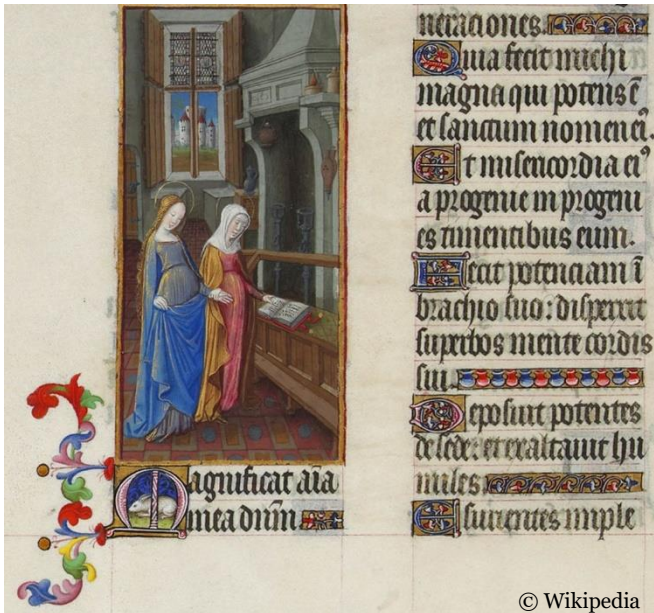 Magnificat aīa
mea dnm̄
neraciones.
Quia fecit michi
magna qui potens ē
et sanctum nomen eiꝰ.
Et misericordia eiꝰ
a progenie in progeni
es timentibus eum.
Fecit potenciam ī
brachio suo: dispersit
superbos mente cordis
sui.
Deposuit potentes
de sede: et exaltauit hu
miles.
Esurientes imple
© Wikipedia